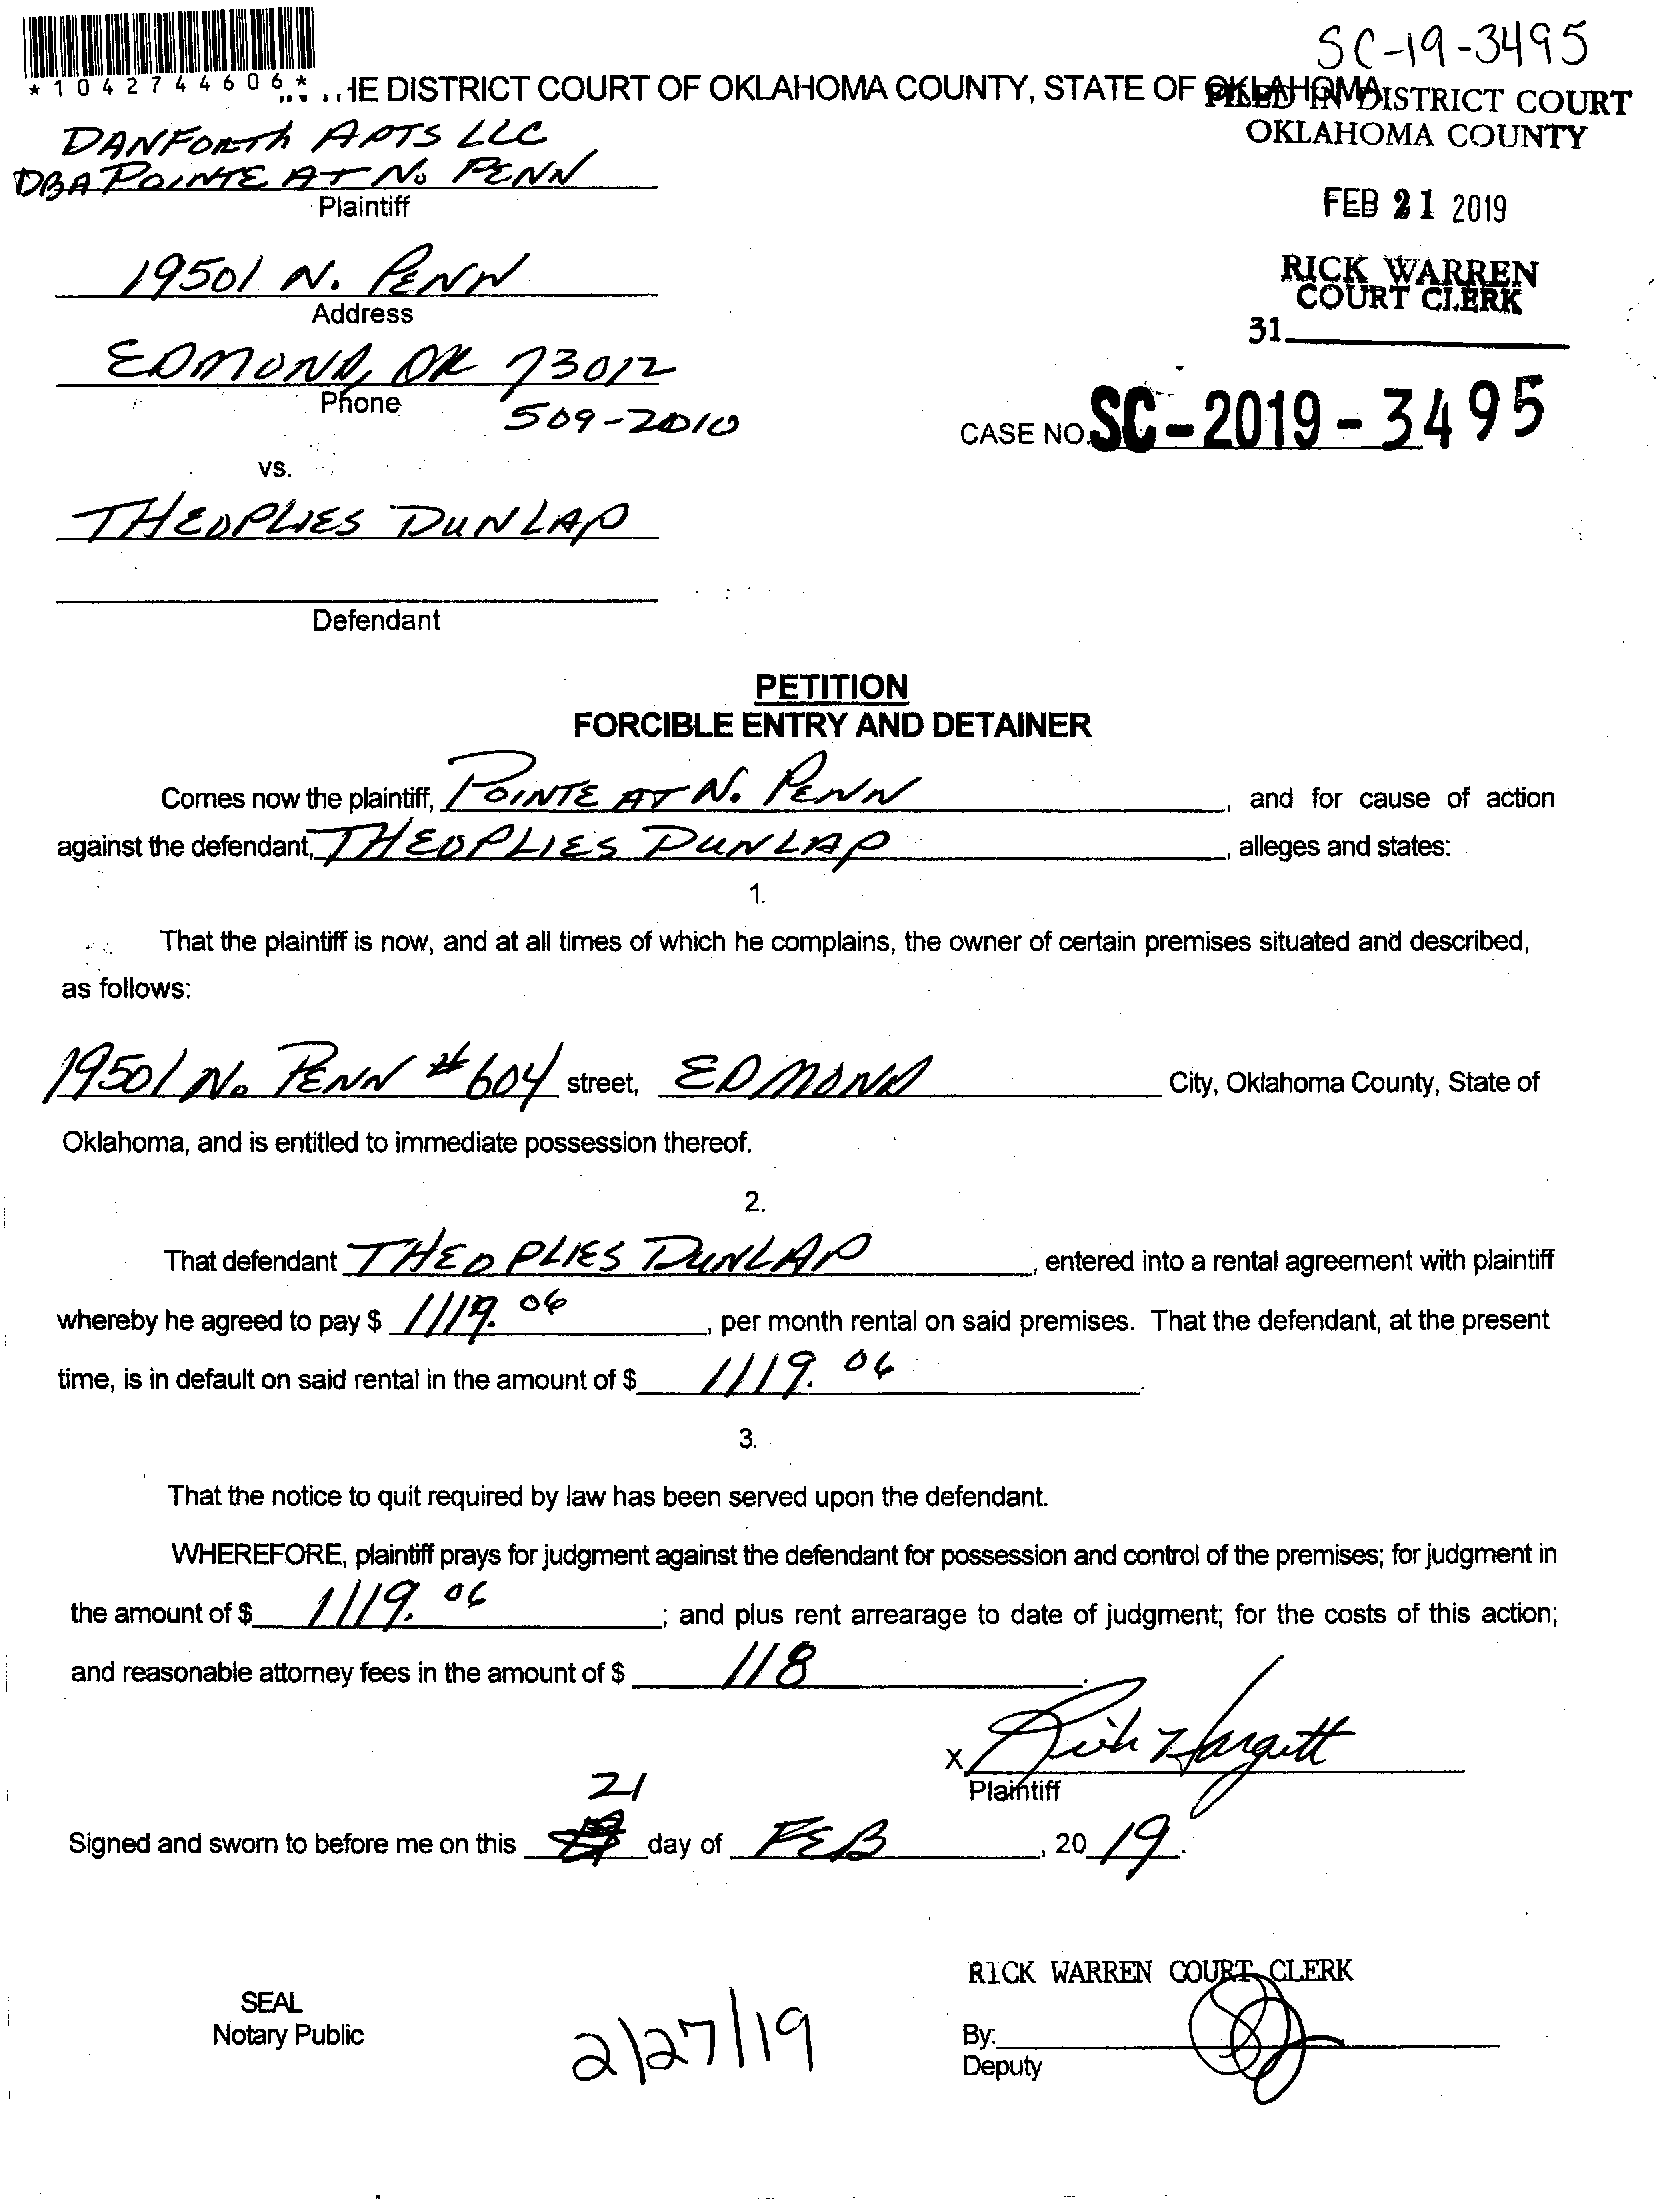 SC-19-3495
*1042744606*
HE DISTRICT COURT OF OKLAHOMA COUNTY, STATE OF OKLAHOMA
FILED IN DISTRICT COURT
OKLAHOMA COUNTY
DANFORTH APTS LLC
DBA POINTE AT N. PENN
Plaintiff
FEB 21 2019
19501 N. PENN
Address
RICK WARREN
COURT CLERK
31
EDMOND, OK 73012
Phone
509-2010
CASE NO. SC-2019-3495
vs.
THEOPLIES DUNLAP
Defendant
PETITION
FORCIBLE ENTRY AND DETAINER
Comes now the plaintiff, POINTE AT N. PENN, and for cause of action
against the defendant, THEOPLIES DUNLAP, alleges and states:
1.
That the plaintiff is now, and at all times of which he complains, the owner of certain premises situated and described,
as follows:
19501 N. PENN #604 street, EDMOND City, Oklahoma County, State of
Oklahoma, and is entitled to immediate possession thereof.
2.
That defendant THEOPLIES DUNLAP, entered into a rental agreement with plaintiff
whereby he agreed to pay $ 1119.06, per month rental on said premises. That the defendant, at the present
time, is in default on said rental in the amount of $ 1119.06.
3.
That the notice to quit required by law has been served upon the defendant.
WHEREFORE, plaintiff prays for judgment against the defendant for possession and control of the premises; for judgment in
the amount of $ 1119.06; and plus rent arrearage to date of judgment; for the costs of this action;
and reasonable attorney fees in the amount of $ 118.
X Rich Hargett
Plaintiff
21
Signed and sworn to before me on this day of FEB, 2019.
RICK WARREN COURT CLERK
SEAL
Notary Public
2/27/19
By:
Deputy